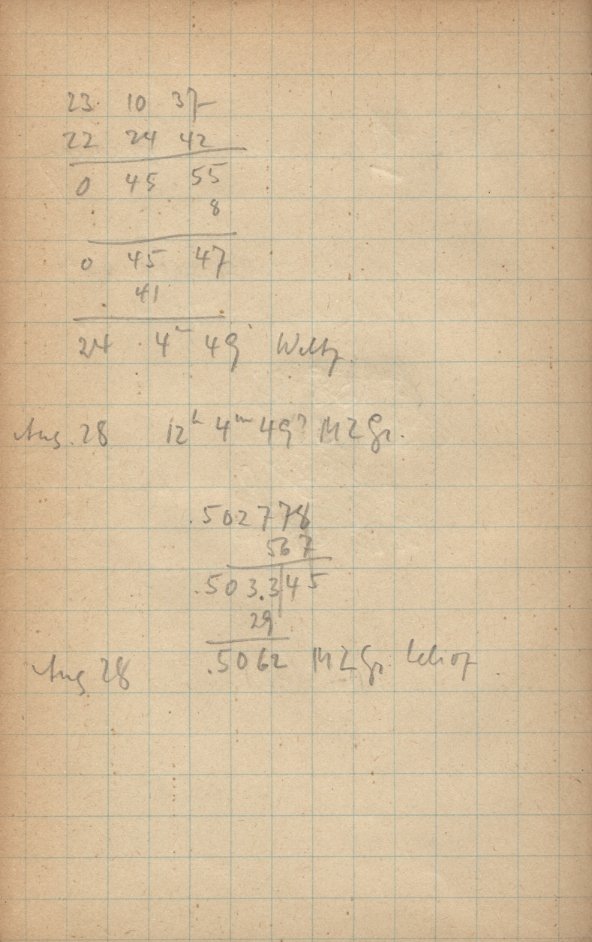 23 10 37
22 24 42
0 45 55
8
0 45 47
41
24 4m 49s Weltz.
Aug. 28 12h 4m 49s MZGr.
.502778
567
.503.345
29
Aug 28 .5062 MZGr.